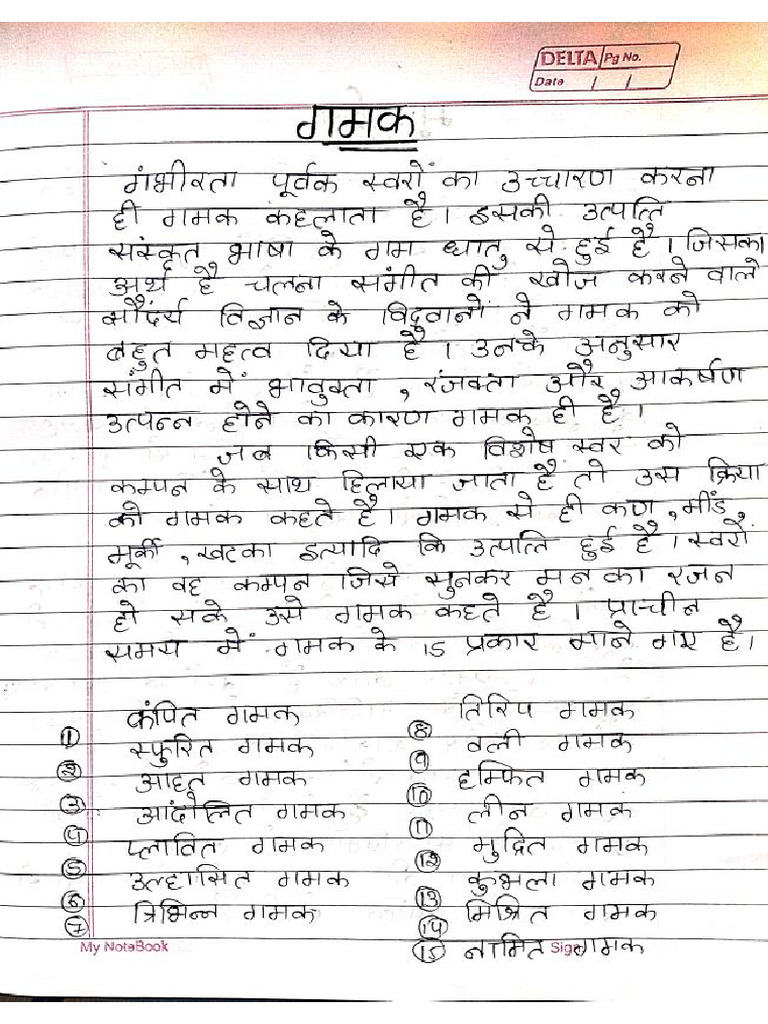 DELTA Pg No.
Date / /
गमक
गंभीरता पूर्वक स्वरों का उच्चारण करना
ही गमक कहलाता है। इसकी उत्पत्ति
संस्कृत भाषा के गम धातु से हुई है। जिसका
अर्थ है चलना संगीत की खोज करने वाले
सौंदर्य विज्ञान के विद्वानों ने गमक को
बहुत महत्व दिया है। उनके अनुसार
संगीत में भावुक्ता, रंजक्ता और आकर्षण
उत्पन्न होने का कारण गमक ही है।
जब किसी एक विशेष स्वर को
कम्पन के साथ हिलाया जाता है तो उस क्रिया
को गमक कहते है। गमक से ही कण, मींड
मूर्की, खटका इत्यादि कि उत्पत्ति हुई है। स्वरों
का वह कम्पन जिसे सुनकर मन का रंजन
हो सके उसे गमक कहते है। प्राचीन
समय में गमक के 15 प्रकार माने गए है।
① कंपित गमक
② स्फुरित गमक
③ आहत गमक
④ आंदोलित गमक
⑤ प्लावित गमक
⑥ उल्हासित गमक
⑦ त्रिभिन्न गमक
⑧ तिरिप गमक
⑨ वली गमक
⑩ हम्फित गमक
⑪ लीन गमक
⑫ मुद्रित गमक
⑬ कुभला गमक
⑭ मिश्रित गमक
⑮ नामित गमक
My NoteBook Sign